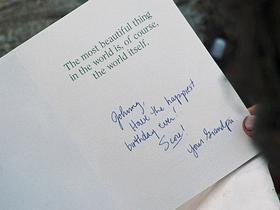 The most beautiful thing
in the world is, of course,
the world itself.
Johnny,
Have the happiest
birthday ever!
Score!
Your Grandpa